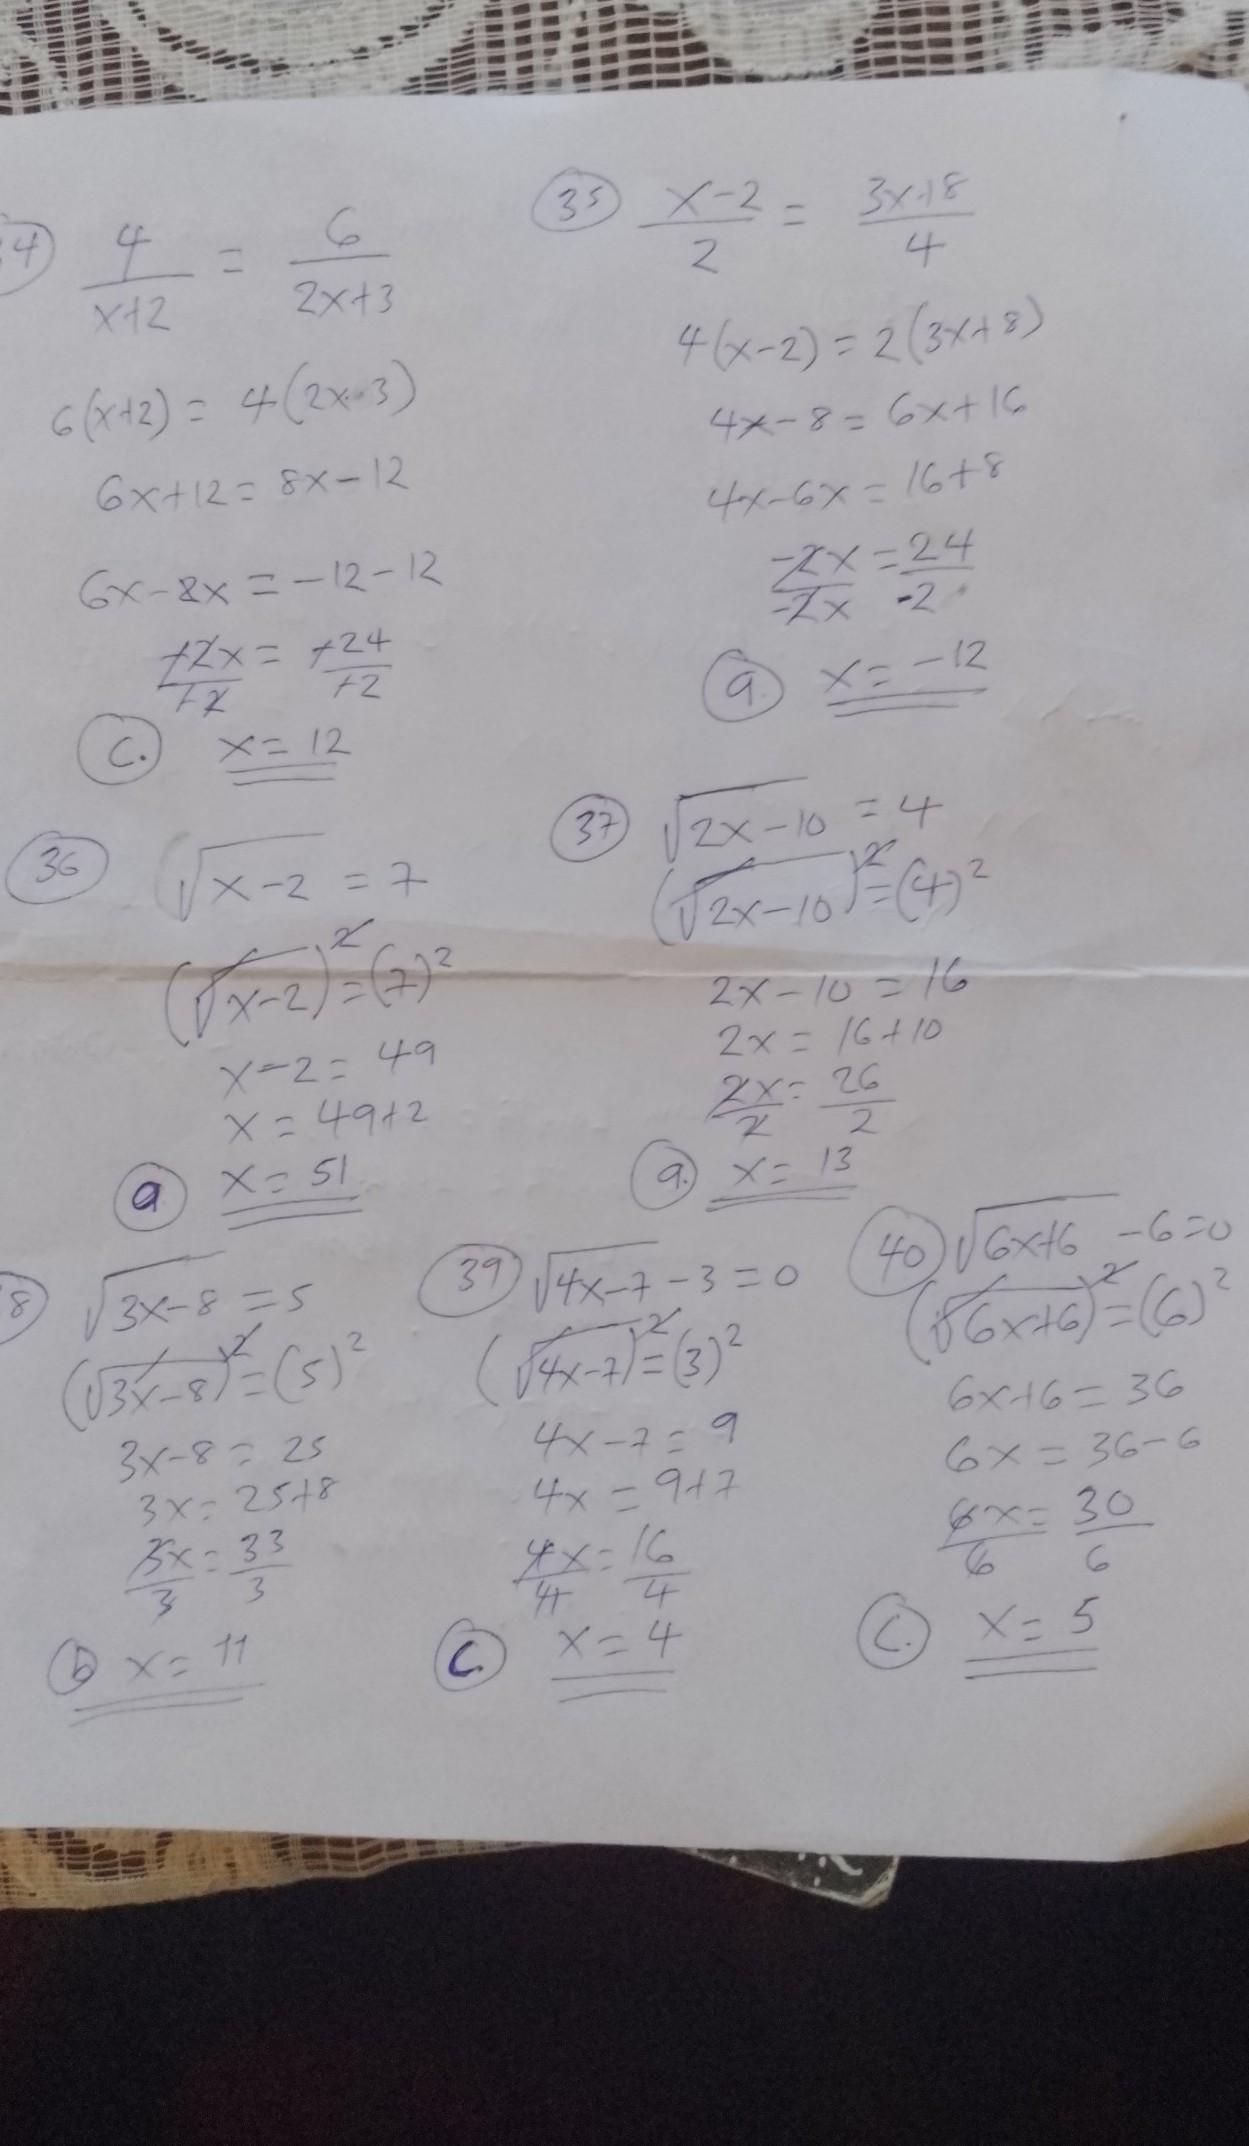 4
4/(x+2) = 6/(2x+3)
6(x+2) = 4(2x-3)
6x+12 = 8x-12
6x-8x = -12-12
+2x/+2 = +24/+2
c. x = 12
35 (x-2)/2 = (3x+8)/4
4(x-2) = 2(3x+8)
4x-8 = 6x+16
4x-6x = 16+8
-2x/-2x = 24/-2
a. x = -12
36 √(x-2) = 7
(√(x-2))² = (7)²
x-2 = 49
x = 49+2
a x = 51
37 √(2x-10) = 4
(√(2x-10))² = (4)²
2x-10 = 16
2x = 16+10
2x/2 = 26/2
a. x = 13
8 √(3x-8) = 5
(√(3x-8))² = (5)²
3x-8 = 25
3x = 25+8
3x/3 = 33/3
b x = 11
39 √(4x-7) -3 = 0
(√(4x-7))² = (3)²
4x-7 = 9
4x = 9+7
4x/4 = 16/4
c. x = 4
40 √(6x+6) -6 = 0
(√(6x+6))² = (6)²
6x+6 = 36
6x = 36-6
6x/6 = 30/6
c. x = 5